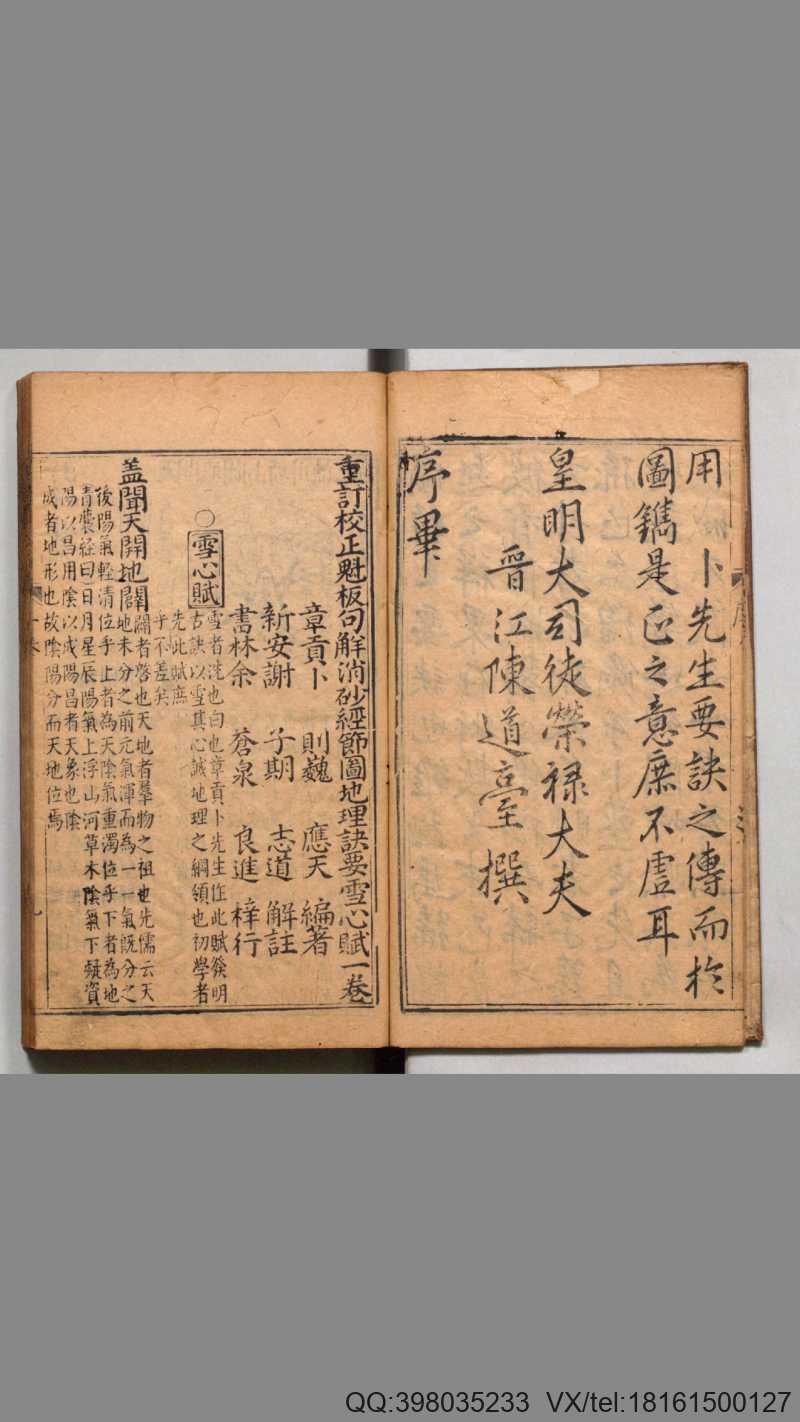 用卜先生要訣之傳而於
圖鐫是正之意庶不虛耳
皇明大司徒榮禄大夫
晉江陳道𡌴撰
序畢
重訂校正魁板句解消砂經節圖地理訣要雪心賦一卷
章貢卜 則巍 應天 編著
新安謝 子期 志道 解註
書林余 蒼泉 良進 梓行
○雪心賦
雪者洗也白也章貢卜先生作此賦發明
古訣以雪其心誠地理之綱領也初學者
先此賦庶
乎不差矣
盖聞天開地闢
闢者啓也天地者羣物之祖也先儒云天
地未分之前元氣渾而為一一氣既分之
後陽氣輕清位乎上者為天陰氣重濁位乎下者為地
青囊經曰日月星辰陽氣上浮山河草木陰氣下凝資
陽以昌用陰以成陽昌者天象也陰
成者地形也故陰陽分而天地位焉
QQ:398035233 VX/tel:18161500127